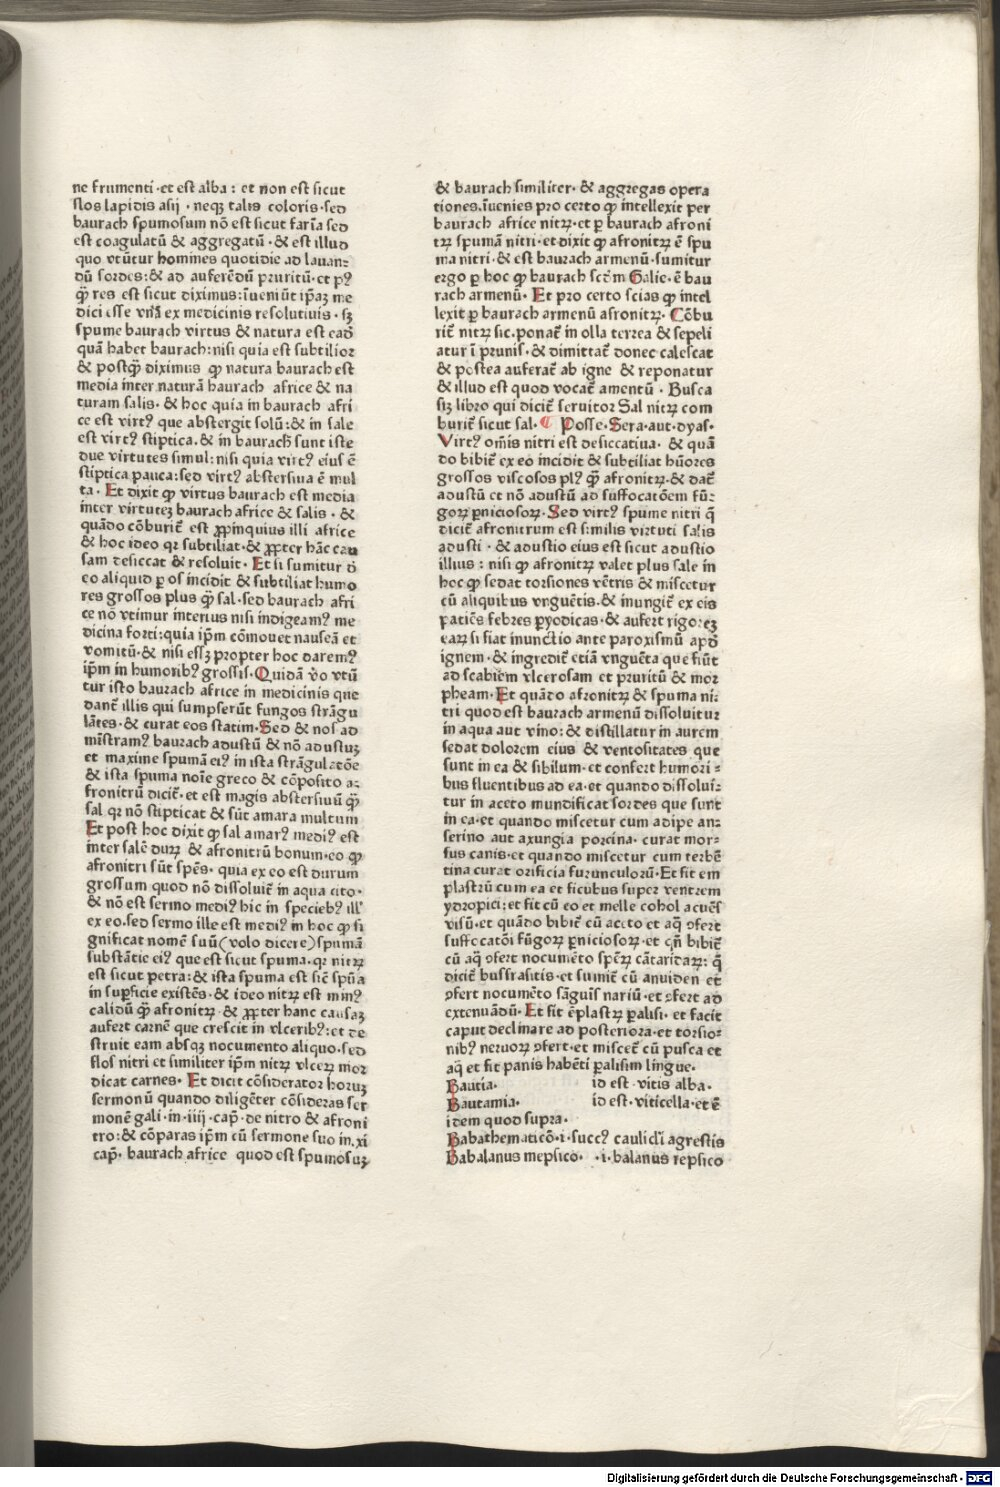 ne frumenti·et est alba: et non est sicut
flos lapidis asij · neqȝ talis coloris·sed
baurach spumosum nō est sicut farīa sed
est coagulatū & aggregatū·& est illud
quo vtūtur homines quotidie ad lauan⸗
dū sordes:& ad auferēdū pruritū·et pꝰ
q̄ȝ res est sicut diximus:īueniūt ip̄aȝ me
dici esse vnā ex medicinis resolutiuis·sȝ
spume baurach virtus & natura est eadē
quā habet baurach:nisi quia est subtilior
& postq̄ȝ diximus ꝙ natura baurach est
media inter naturā baurach africe & na
turam salis·& hoc quia in baurach afri
ce est virtꝰ que abstergit solū:& in sale
est virtꝰ stiptica·& in baurach sunt iste
due virtutes simul:nisi quia virtꝰ eius ē
stiptica pauca:sed virtꝰ abstersiua ē mul
ta· Et dixit ꝙ virtus baurach est media
inter virtuteȝ baurach africe & salis·&
quādo cōburit᷑ est ꝓpinquius illi africe
& hoc ideo qꝛ subtiliat·& ꝓpter hāc cau
sam desiccat & resoluit· Et si sumitur d̄
eo aliquid ꝑ os incidit & subtiliat humo
res grossos plus q̄ȝ sal·sed baurach afri
ce nō vtimur interius nisi indigeamꝰ me
dicina forti:quia ip̄m cōmouet nauseā et
vomitū·& nisi esȝ propter hoc daremꝰ
ip̄m in humoribꝰ grossis·Quidā v̄o vtū
tur isto baurach africe in medicinis que
dant᷑ illis qui sumpserūt fungos strāgu
lātes·& curat eos statim·Sed & nos ad
mīstramꝰ baurach adustū & nō adustuȝ
et maxime spumā eiꝰ in ista strāgulatōe
& ista spuma noīe greco & cōposito a⸗
fronitrū dicit᷑·et est magis abstersiuū q̄ȝ
sal qꝛ nō stipticat & sūt amara multum
Et post hoc dixit ꝙ sal amarꝰ mediꝰ est
inter salē durꝝ & afronitrū bonum·eo ꝙ
afronitri sūt spēs· quia ex eo est durum
grossum quod nō dissoluit᷑ in aqua cito·
& nō est sermo mediꝰ hic in speciebꝰ illꝰ
ex eo·sed sermo ille est mediꝰ in hoc ꝙ si
gnificat nomē suū(volo dicere)spumā
substātie eiꝰ que est sicut spuma·qꝛ nitꝝ
est sicut petra:& ista spuma est sic̄ spūa
in suꝑficie existēs·& ideo nitꝝ est minꝰ
calidū q̄ȝ afronitꝝ·& ꝓpter hanc causaȝ
aufert carnē que crescit in vlceribꝰ:et de
struit eam absqȝ nocumento aliquo·sed
flos nitri et similiter ip̄m nitꝝ vlceꝝ mor
dicat carnes· Et dicit cōsiderator horuȝ
sermonū quando diligēter cōsideras ser
monē gali·in·iiij·cap̄·de nitro & afroni
tro:& cōparas ip̄m cū sermone suo in·xi
cap̄· baurach africe quod est spumosuȝ
& baurach similiter· & aggregas opera
tiones·īuenies pro certo ꝙ intellexit per
baurach africe nitꝝ·et ꝑ baurach afroni
tꝝ spumā nitri·et dixit ꝙ afronitꝝ ē spu
ma nitri·& est baurach armenū·sumitur
ergo ꝑ hoc ꝙ baurach scd̄m Galie·ē bau
rach armenū· Et pro certo scias ꝙ intel
lexit ꝑ baurach armenū afronitꝝ· Cōbu
rit᷑ nitꝝ sic·ponat᷑ in olla terrea & sepeli
atur ī prunis·& dimittat᷑ donec calescat
& postea auferat᷑ ab igne & reponatur
& illud est quod vocat᷑ amentū· Busca
siȝ libro qui dicit᷑ seruitor Sal nitꝝ com
burit᷑ sicut sal· ¶ Posse·Sera·aut·dyas·
Virtꝰ om̄is nitri est desiccatiua· & quā
do bibit᷑ ex eo incidit & subtiliat hūores
grossos viscosos plꝰ q̄ȝ afronitꝝ·& dat᷑
adustū et nō adustū ad suffocatōem fū⸗
goꝝ ꝑniciosoꝝ· Sed virtꝰ spume nitri q̄
dicit᷑ afronitrum est similis virtuti salis
adusti·& adustio eius est sicut adustio
illius: nisi ꝙ afronitꝝ valet plus sale in
hoc ꝙ sedat torsiones vētris & miscetur
cū aliquibus vnguētis·& inungit᷑ ex eis
patiēs febres ꝑyodicas·& aufert rigoreȝ
eaꝝ si fiat inunctio ante paroxismū apd̄
ignem·& ingredit᷑ etiā vnguēta que fiūt
ad scabiem vlcerosam et pruritū & mor
pheam·Et quādo afronitꝝ & spuma ni⸗
tri quod est baurach armenū dissoluitur
in aqua aut vino:& distillatur in aurem
sedat dolorem eius & ventositates que
sunt in ea & sibilum·et confert humori⸗
bus fluentibus ad ea·et quando dissolui⸗
tur in aceto mundificat sordes que sunt
in ea·et quando miscetur cum adipe an⸗
serino aut axungia porcina· curat mor⸗
sus canis·et quando miscetur cum terbē
tina curat orificia furunculorū·Et fit em
plastrū cum ea et ficubus super ventrem
ydropici:et fit cū eo et melle cohol acuēs
visū·et quādo bibit᷑ cū aceto et aq̄ ꝯfert
suffocatōi fūgoꝝ ꝑniciosoꝝ·et qn̄ bibit᷑
cū aq̄ ꝯfert nocumēto speꝝ cātaridaꝝ: q̄
dicit᷑ buffrasitis·et sumit᷑ cū anuiden et
ꝯfert nocumēto sāguīs nariū·et ꝯfert ad
extenuādū· Et fit ēplastꝝ ꝑalisi·et facit
caput declinare ad posteriora·et torsio⸗
nibꝰ neruoꝝ ꝯfert·et miscet᷑ cū pusca et
aq̄ et fit panis habēti ꝑalisim lingue·
Bautia· id est·vitis alba·
Bautamia· id est·viticella·et ē
idem quod supra·
Babathematicō·i·succꝰ caulicl̄i agrestis
Babalanus mepsico· ·i·balanus repsico
Digitalisierung gefördert durch die Deutsche Forschungsgemeinschaft · DFG